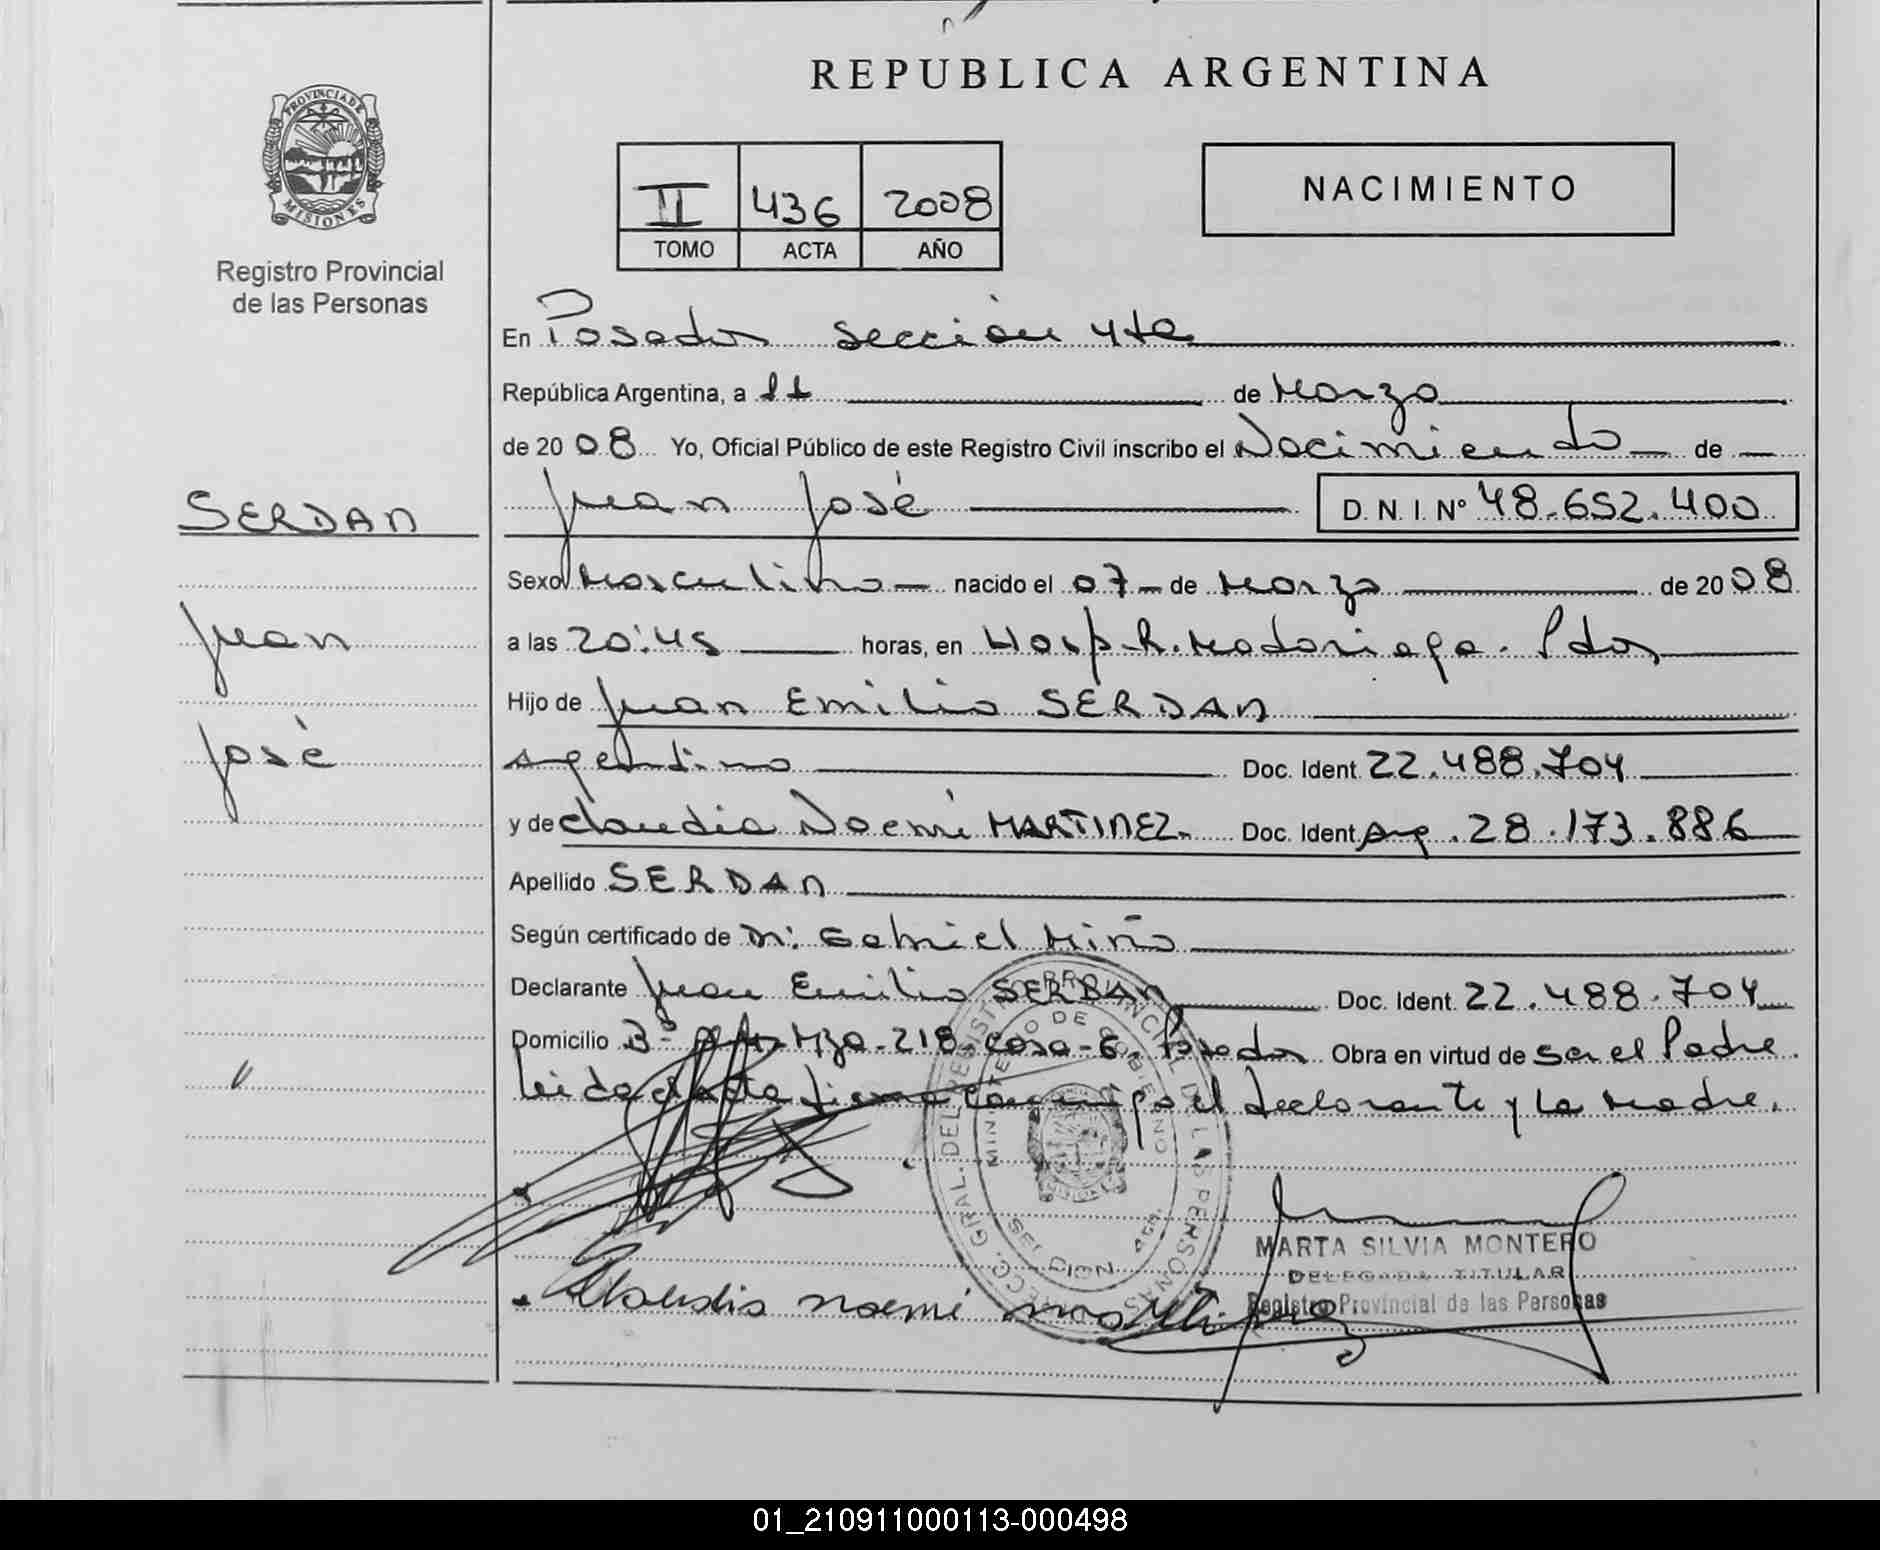 REPUBLICA ARGENTINA
PROVINCIA DE
MISIONES
Registro Provincial
de las Personas
II 436 2008
TOMO ACTA AÑO
NACIMIENTO
En Posadas sección 4ta
República Argentina, a 11 de Marzo
de 2008 Yo, Oficial Público de este Registro Civil inscribo el Nacimiento de
SERDAN
Juan José D.N.I. Nº 48.652.400
Sexo Masculino nacido el 07 de Marzo de 2008
Juan
a las 20:45 horas, en Hosp. R. Madariaga. Pdas
Hijo de Juan Emilio SERDAN
José
argentino Doc. Ident. 22.488.704
y de Claudia Noemí MARTINEZ. Doc. Ident. Arg. 28.173.886
Apellido SERDAN
Según certificado de Dr. Gabriel Miño
Declarante Juan Emilio SERDAN Doc. Ident. 22.488.704
Domicilio Bº Mza. 218 casa 6. Posadas Obra en virtud de ser el Padre.
leida el acta firma conmigo el declarante y la Madre.
MINISTERIO DE GOBIERNO
MARTA SILVIA MONTERO
DELEGADA TITULAR
Registro Provincial de las Personas
Claudia noemi martinez
01_210911000113-000498